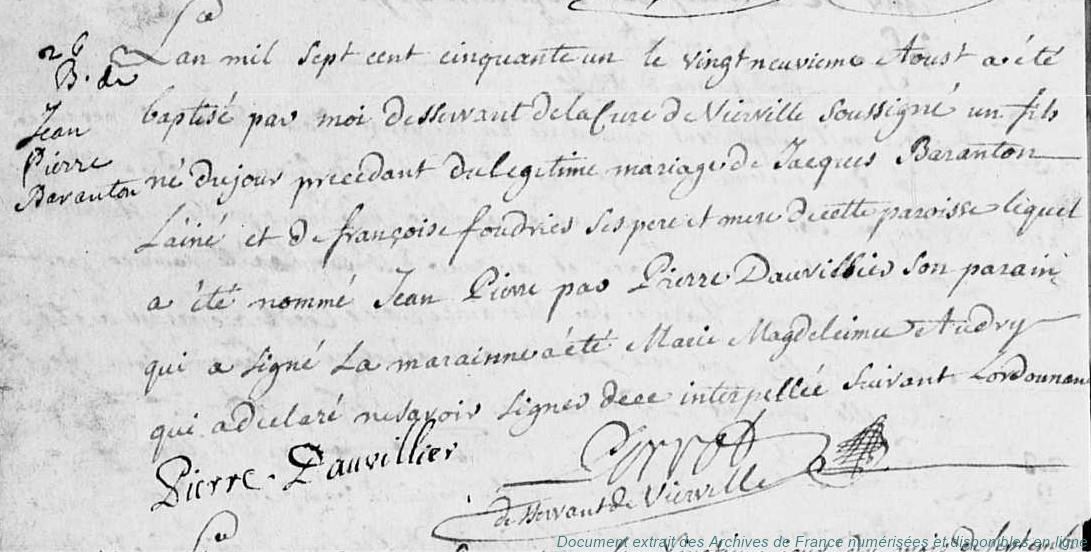 26
B. de
Jean
Pierre
Baranton
Lan mil sept cent cinquante un le vingt neuvieme Aoust a été
baptisé par moi desservant de la Cure de Vierville soussigné un fils
né du jour precedant du legitime mariage de Jacques Baranton
Lainé et de françoise foudrier ses pere et mere de cette paroisse lequel
a été nommé Jean Pierre par Pierre Dauvillier son parain
qui a signé La marainne a été Marie Magdeleinne Audry
qui a declaré ne savoir signer de ce interpellée suivant Lordonnan
Pierre Dauvillier
desservant de Vierville
Document extrait des Archives de France numérisées et disponibles en ligne